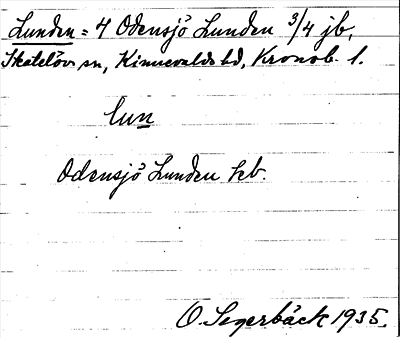 Lunden = 4 Odensjö Lunden 3/4 jb,
Skatelövs sn, Kinnevalds hd, Kronob. l.
lun
Odensjö Lunden hb.
O. Segerbäck 1935.